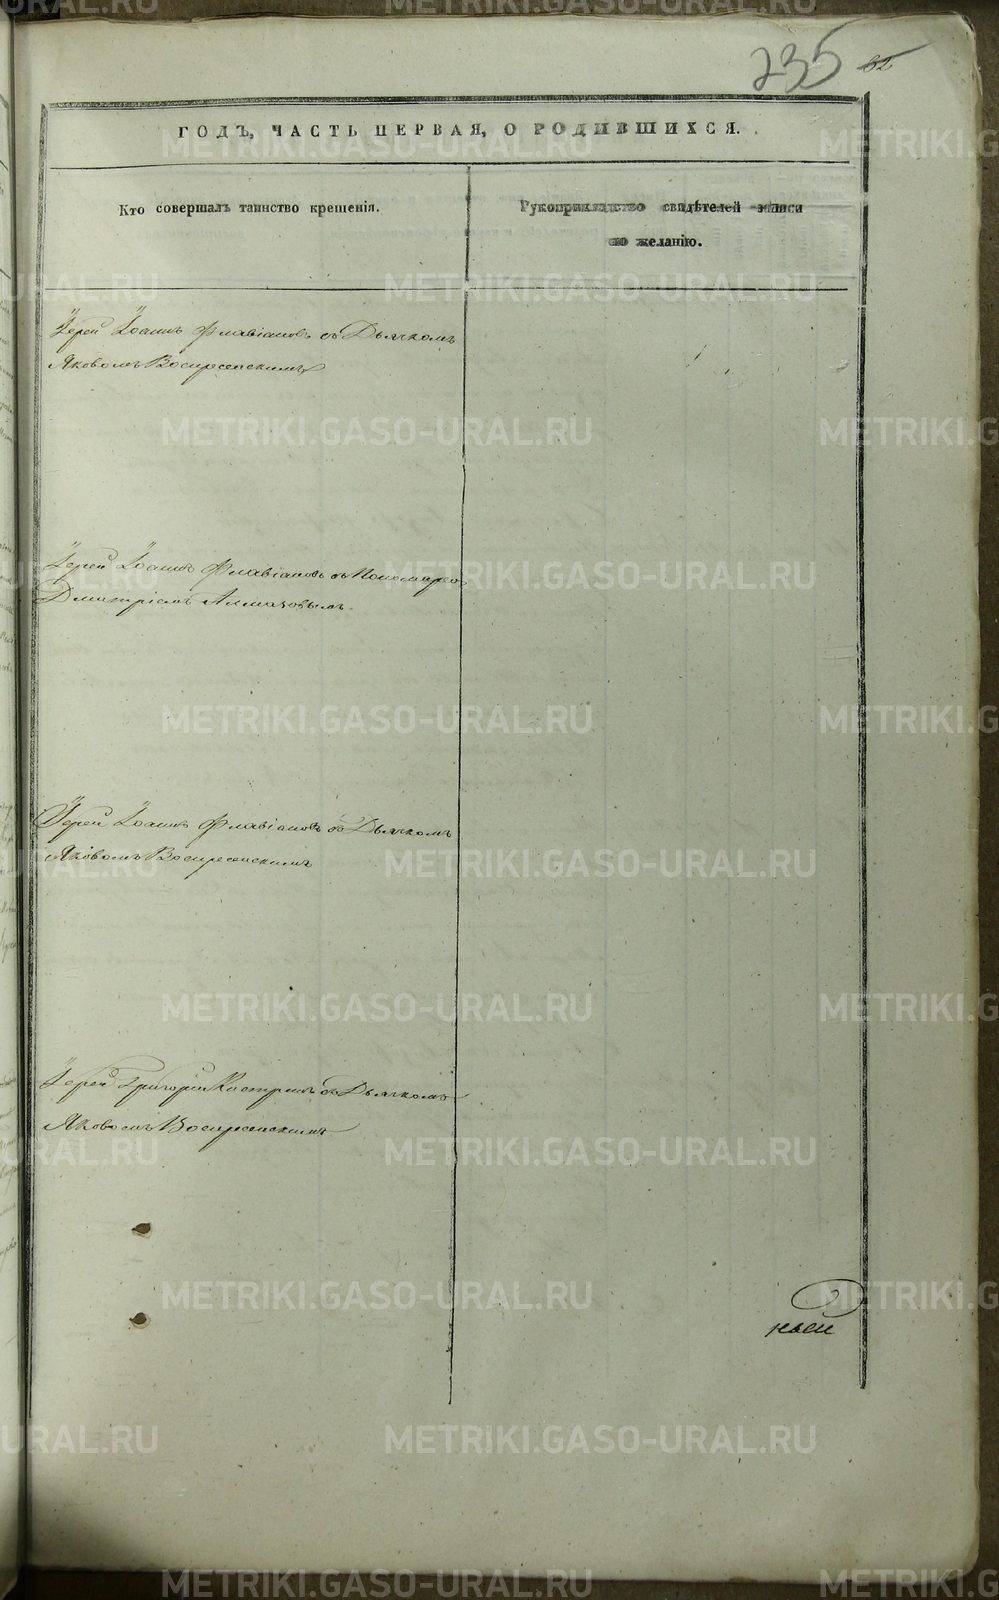 235 62
ГОДЪ, ЧАСТЬ ПЕРВАЯ, О РОДИВШИХСЯ.
Кто совершалъ таинство крещенія.
Рукоприкладство свидѣтелей записи
по желанію.
Іерей Іоаннъ Флавіановъ съ Дьячкомъ
Яковомъ Воскресенскимъ
Іерей Іоаннъ Флавіановъ съ Пономаремъ
Дмитріемъ Алмазовымъ.
Іерей Іоаннъ Флавіановъ съ Дьячкомъ
Яковомъ Воскресенскимъ
Іерей Григорій Кастринъ съ Дьячкомъ
Яковомъ Воскресенскимъ
METRIKI.GASO-URAL.RU